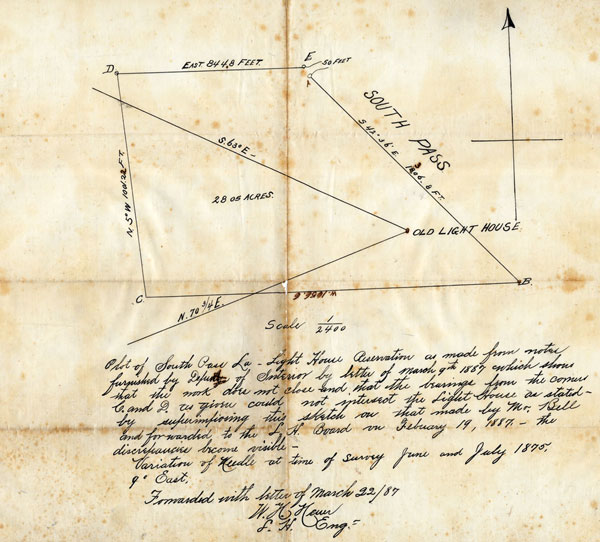 D
EAST 844.8 FEET.
E
50 FEET
A
SOUTH PASS
S 42°-56' E
1806.8 FT.
S. 63° E -
N. 5° W 1001.22 FT.
28 05 ACRES.
OLD LIGHT HOUSE
B.
C.
W. 1056.6
N. 70 3/4 E.
Scale 1/2400
Plot of South Pass La - Light House Reservation as made from notes
furnished by Dept of Interior by letter of March 9th 1887 which shows
that the work does not close and that the bearings from the corners
C. and D, as given could not intersect the Light House as stated -
by superimposing this sketch on that made by Mr. Bell
and forwarded to the L. H. Board on February 19, 1887. - the
discrepancies become visible -
Variation of Needle at time of survey June and July 1875,
9° East.
Forwarded with letter of March 22/87
W. H. Heuer
L. H. Eng.